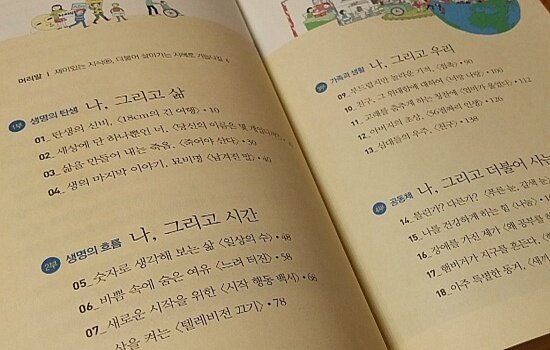 머리말 | 재미있는 지식ⓔ, 더불어 살아가는 지혜로 거듭나길 6
1부 생명의 탄생 나, 그리고 삶
01_ 탄생의 신비, 〈18cm의 긴 여행〉 • 10
02_ 세상에 단 하나뿐인 너, 〈당신의 이름은 몇 개입니까?〉
03_ 삶을 만들어 내는 죽음, 〈죽어야 산다〉 • 30
04_ 생의 마지막 이야기, 묘비명 〈남겨진 말〉 • 40
2부 생명의 흐름 나, 그리고 시간
05_ 숫자로 생각해 보는 삶 〈일상의 수〉 • 48
06_ 바쁨 속에 숨은 여유 〈느려 터진〉 • 58
07_ 새로운 시작을 위한 〈시작 행동 백서〉 • 68
삶을 켜는 〈텔레비전 끄기〉 • 78
3부 가족과 생활 나, 그리고 우리
09_ 부드럽지만 놀라운 기적, 〈접촉〉 • 90
10_ 친구, 그 위대함에 대하여 〈너랑 나랑〉 • 100
11_ 고래를 춤추게 하는 칭찬에 〈엄마가 울었다〉 • 112
12_ 아버지의 초상, 〈56점짜리 인생〉 • 126
13_ 십대들의 우주, 〈친구〉 • 138
4부 공동체 나, 그리고 더불어 사는
14_ 틀린가? 다른가? 〈푸른 눈, 갈색 눈
15_ 나를 건강하게 하는 힘 〈나눔〉
16_ 장애를 가진 제가 〈왜 공부를
17_ 햄버거가 지구를 흔든다,
18_ 아주 특별한 동거, 〈새끼